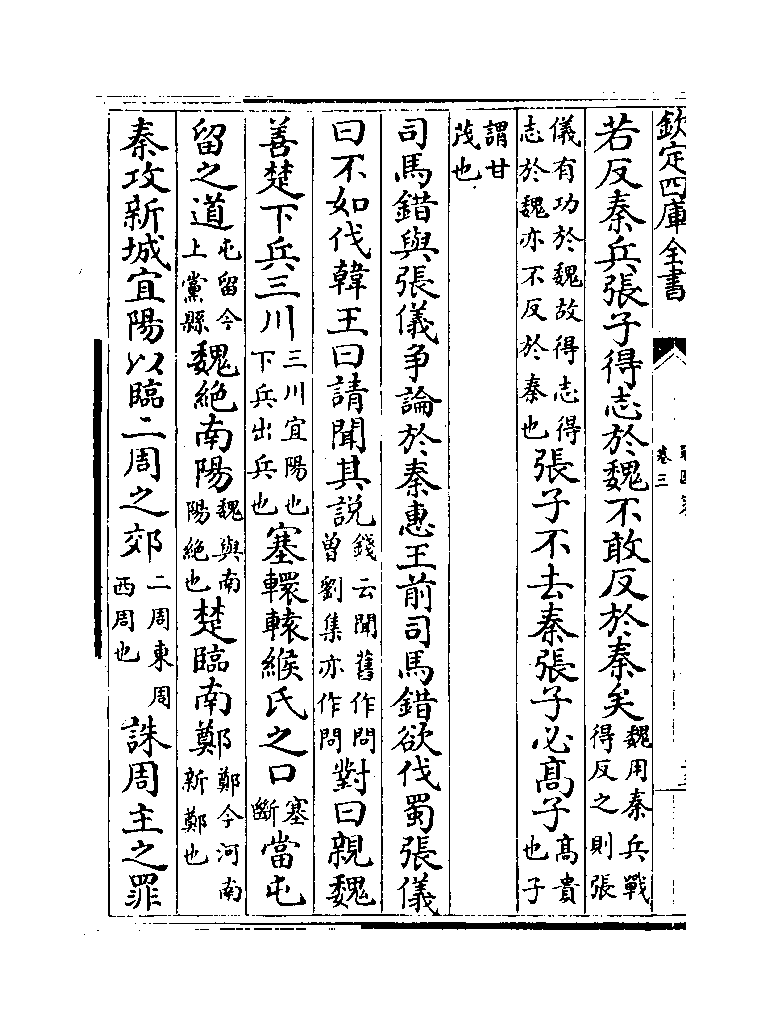 欽定四庫全書
卷三
若反秦兵張子得志於魏不敢反於秦矣魏用秦兵戰得反之則張
儀有功於魏故得志得志於魏亦不反於秦也張子不去秦張子必髙子髙貴也子
謂甘茂也
司馬錯與張儀爭論於秦惠王前司馬錯欲伐蜀張儀
曰不如伐韓王曰請聞其說錢云聞舊作問曾劉集亦作問對曰親魏
善楚下兵三川三川宜陽也下兵出兵也塞轘轅緱氏之口塞斷當屯
留之道屯留今上黨縣魏絶南陽魏與南陽絶也楚臨南鄭鄭今河南新鄭也
秦攻新城宜陽以臨二周之郊二周東周西周也誅周主之罪